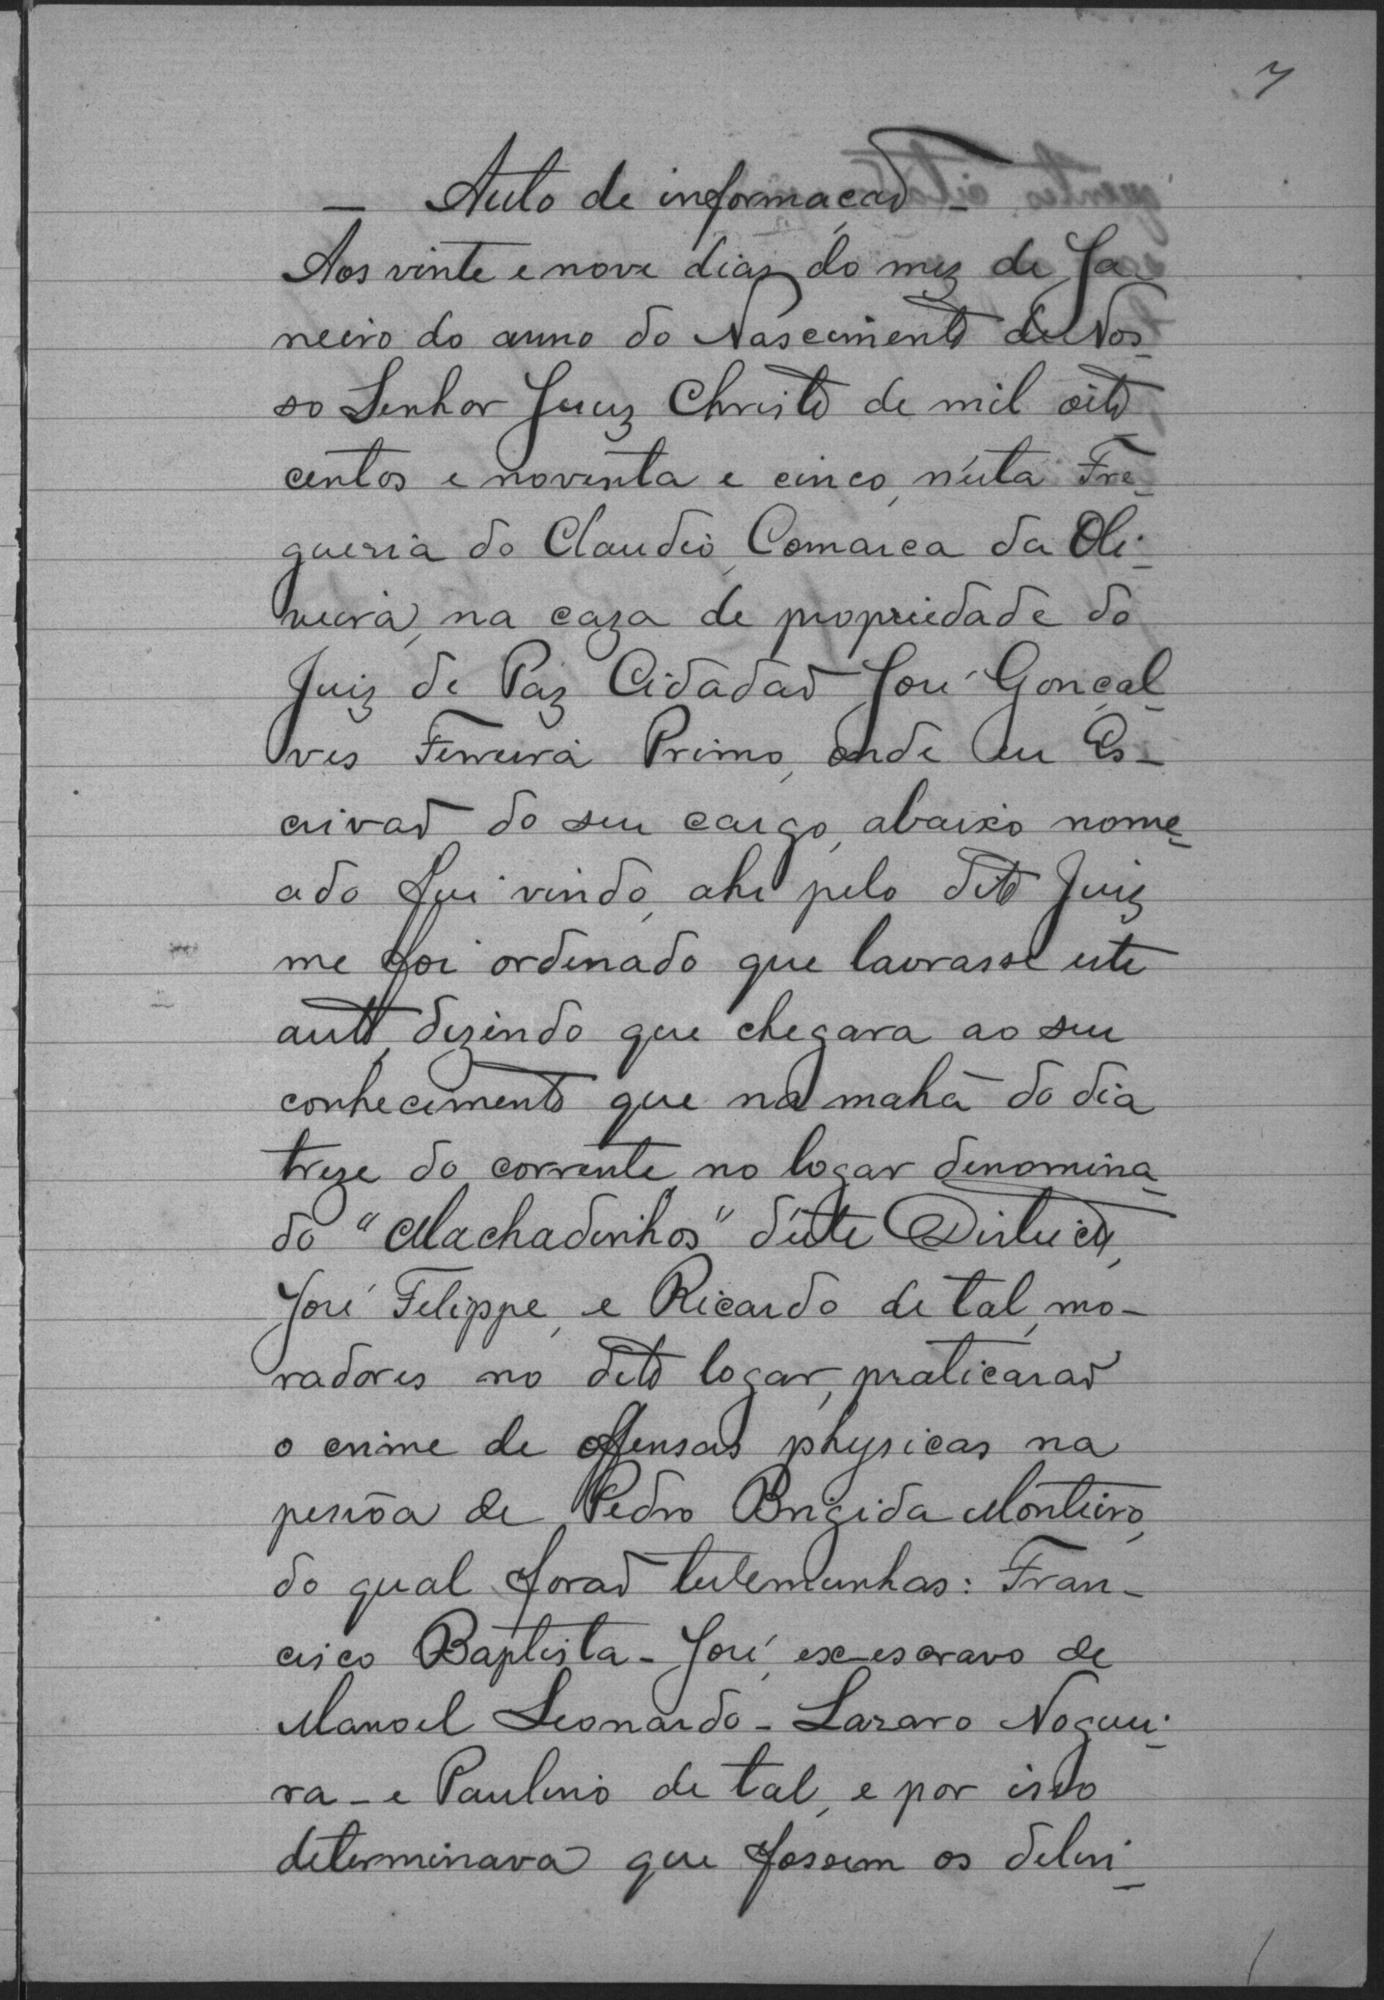 7
— Auto de informação —
Aos vinte e nove dias do mez de Ja-
neiro do anno do Nascimento de Nos-
so Senhor Jesuz Christo de mil oito
centos e noventa e cinco, n'esta Fre-
guesia do Claudio, Comarca da Oli-
veira, na caza de propriedade do
Juiz de Paz Cidadão José Gonçal-
ves Ferreira Primo, onde eu Es-
crivão do seu cargo, abaixo nome-
ado fui vindo, ahi pelo dito Juiz
me foi ordenado que lavrasse este
auto, dizindo que chegara ao seu
conhecimento que na mahã do dia
treze do corrente, no logar denomina-
do "Machadinhos" d'este Districto,
José Filippe, e Ricardo de tal, mo-
radores no dito logar, praticarão
o crime de offensas physicas na
pessôa de Pedro Brigida Monteiro,
do qual forão testemunhas: Fran-
cisco Baptista - José, ex-escravo de
Manoel Leonardo - Lazaro Noguei-
ra - e Paulino de tal, e por isso
determinava que fossem os delin-